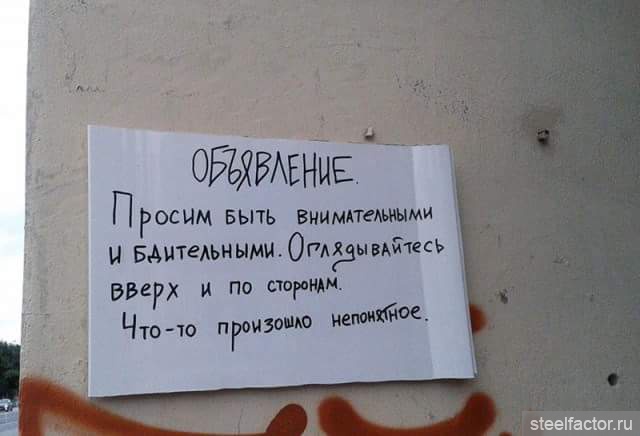 ОБЪЯВЛЕНИЕ.
Просим быть внимательными
и бдительными. Оглядывайтесь
вверх и по сторонам.
Что-то произошло непонятное.
steelfactor.ru